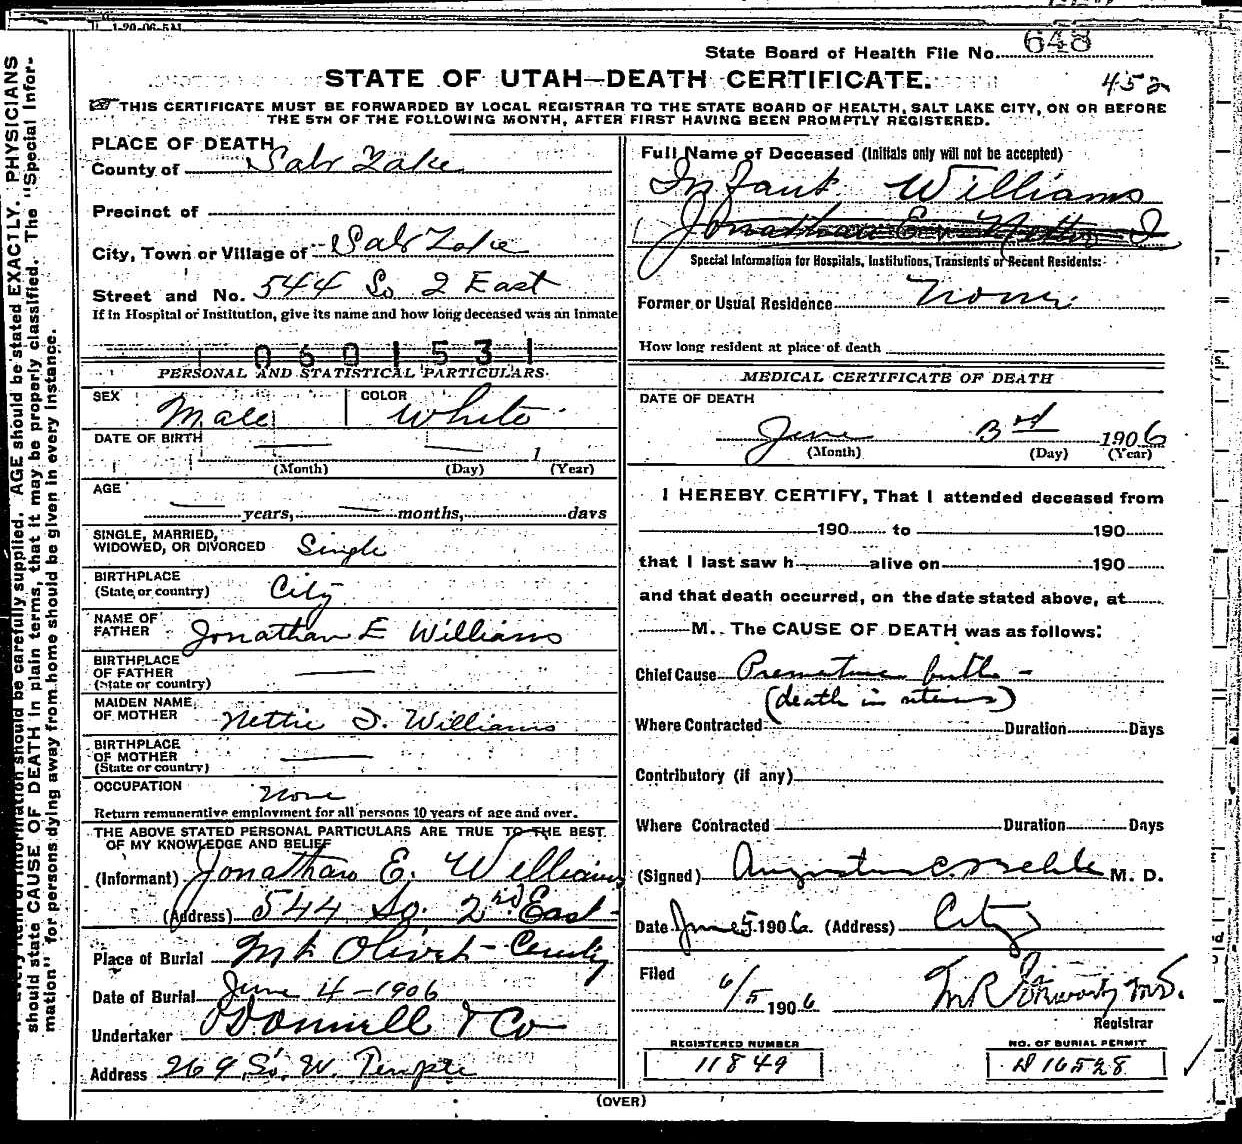 1-20-06-5M
State Board of Health File No. 648
STATE OF UTAH—DEATH CERTIFICATE.
452
THIS CERTIFICATE MUST BE FORWARDED BY LOCAL REGISTRAR TO THE STATE BOARD OF HEALTH, SALT LAKE CITY, ON OR BEFORE
THE 5TH OF THE FOLLOWING MONTH, AFTER FIRST HAVING BEEN PROMPTLY REGISTERED.
PLACE OF DEATH
County of Salt Lake
Precinct of
City, Town or Village of Salt Lake
Street and No. 544 So 2 East
If in Hospital or Institution, give its name and how long deceased was an inmate
0601531
PERSONAL AND STATISTICAL PARTICULARS.
SEX Male
COLOR White
DATE OF BIRTH
(Month) (Day) 1 (Year)
AGE
years, months, days
SINGLE, MARRIED,
WIDOWED, OR DIVORCED Single
BIRTHPLACE
(State or country) City
NAME OF
FATHER Jonathan E Williams
BIRTHPLACE
OF FATHER
(State or country)
MAIDEN NAME
OF MOTHER Nettie I. Williams
BIRTHPLACE
OF MOTHER
(State or country)
OCCUPATION None
Return remunerative employment for all persons 10 years of age and over.
THE ABOVE STATED PERSONAL PARTICULARS ARE TRUE TO THE BEST
OF MY KNOWLEDGE AND BELIEF
(Informant) Jonathan E. Williams
(Address) 544 So. 2nd East
Place of Burial Mt Olivet
Date of Burial June 4-1906
Undertaker O'Donnell & Co
Address 269 So. W. Temple
Full Name of Deceased (Initials only will not be accepted)
Infant Williams
Jonathan E.
Special Information for Hospitals, Institutions, Transients or Recent Residents:
Former or Usual Residence None
How long resident at place of death
MEDICAL CERTIFICATE OF DEATH
DATE OF DEATH
June 3rd 1906
(Month) (Day) (Year)
I HEREBY CERTIFY, That I attended deceased from
190 to 190
that I last saw h alive on 190
and that death occurred, on the date stated above, at
M. The CAUSE OF DEATH was as follows:
Chief Cause Premature birth -
(death in uterus)
Where Contracted Duration Days
Contributory (if any)
Where Contracted Duration Days
(Signed) Augustus C. Behle M. D.
Date June 5 1906 (Address) City
Filed 6/5 1906
Registrar
REGISTERED NUMBER
11849
NO. OF BURIAL PERMIT
16528
(OVER)
PHYSICIANS
should be carefully supplied. AGE should be stated EXACTLY.
should state CAUSE OF DEATH in plain terms, that it may be properly classified. The "Special Infor-
mation" for persons dying away from home should be given in every instance.